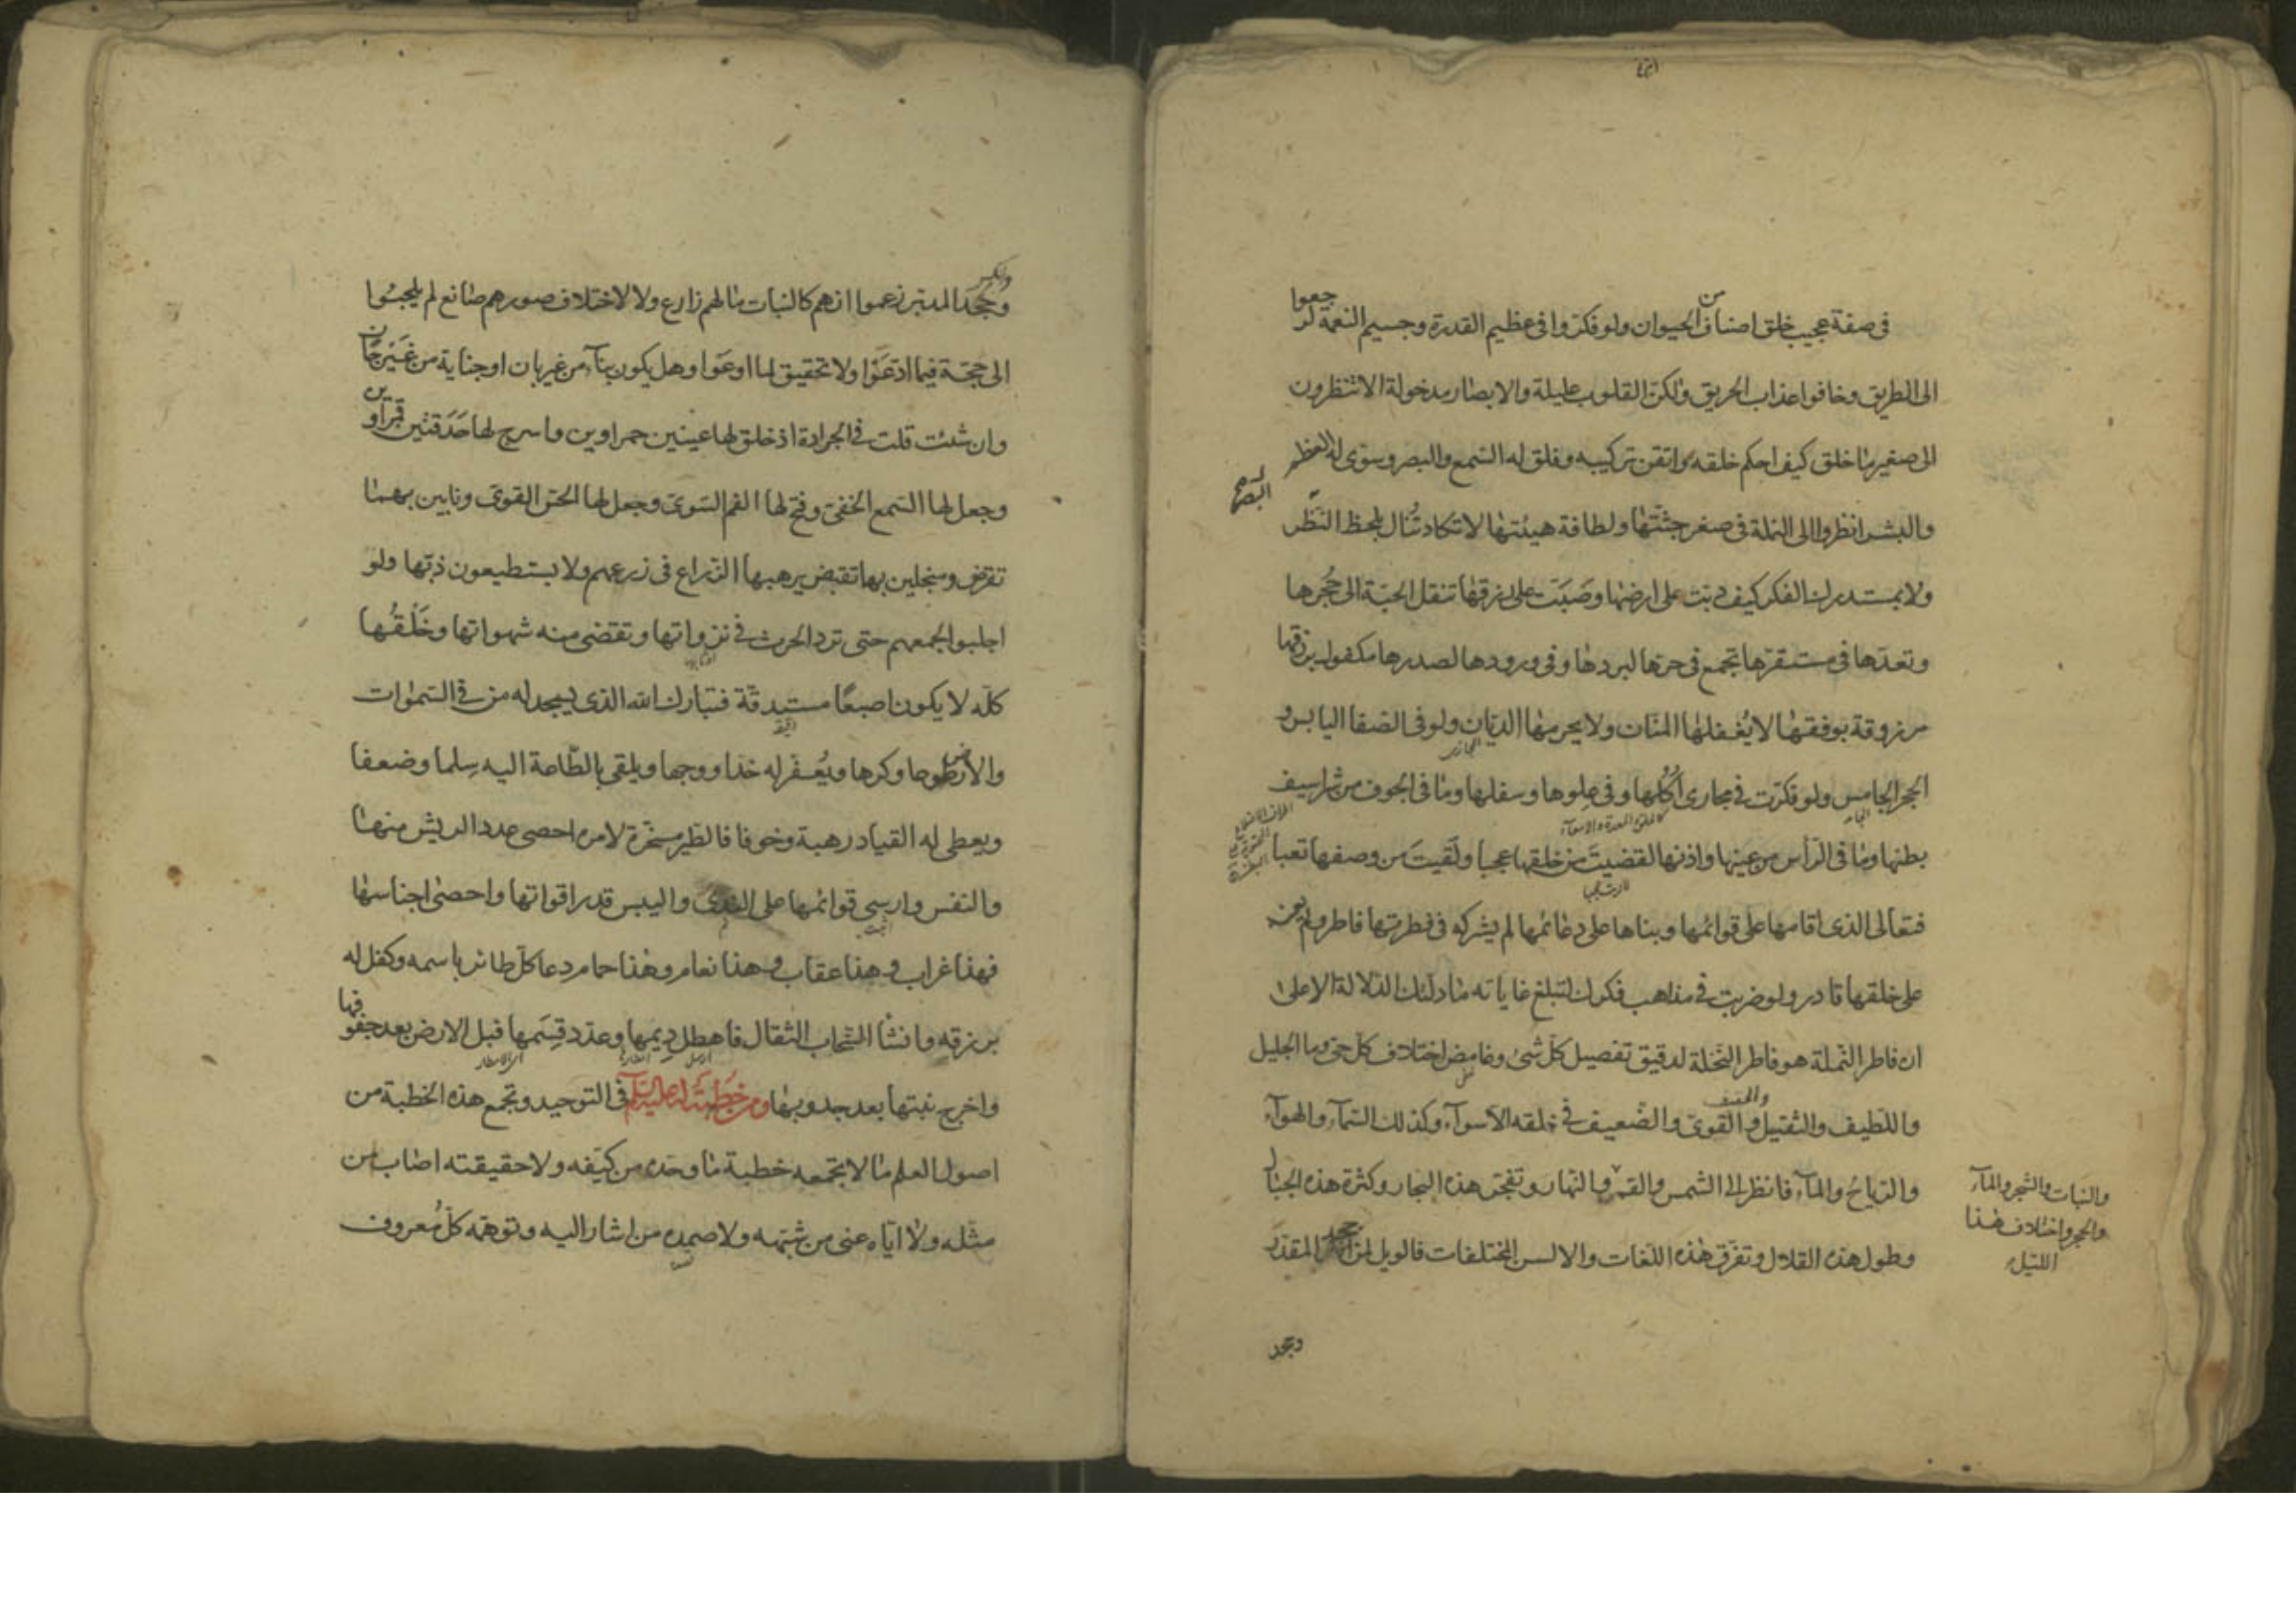 فى صفة عجيب خلق اصناف من الحيوان ولو فكروا فى عظيم القدرة وجسيم النعمة لرجعوا
الى الطريق وخافوا عذاب الحريق ولكن القلوب عليلة والابصار مدخولة الا تنظرون
الى صغير ما خلق كيف احكم خلقه واتقن تركيبه وفلق له السمع والبصر وسوى له العظم
والبشر انظروا الى النملة فى صغر جثتها ولطافة هيئتها لا تكاد تُنال بلحظ النظر
البصر
ولا بمستدرك الفكر كيف دبت على ارضها وصَبَت على رزقها تنقل الحبة الى جُحرها
وتعدها فى مستقرها تجمع فى حرها لبردها وفى ورودها لصدرها مكفول برزقها
مرزوقة بوفقها لا يُغفلها المنان ولا يحرمها الديان ولو فى الصفا اليابس و
الحجر الجامس ولو فكرت فى مجارى اُكُلها وفى علوها وسفلها وما فى الجوف من شراسيف
بطنها وما فى الرأس من عينها واذنها لقضيتَ من خلقها عجبا ولَقيتَ من وصفها تعبا
فتعالى الذى اقامها على قوائمها وبناها على دعائمها لم يشركه فى فطرتها فاطر ولم يعنه
على خلقها قادر ولو ضربت فى مذاهب فكرك لتبلغ غاياته ما دلتك الدلالة الا على
ان فاطر النملة هو فاطر النخلة لدقيق تفصيل كل شئ وغامض اختلاف كل حى وما الجليل
واللطيف والثقيل والخفيف والقوى والضعيف فى خلقه الا سوآء وكذلك السمآء والهوآء
والرياح والمآء فانظر الى الشمس والقمر والنهار وتفجر هذه البحار وكثرة هذه الجبال
والنبات والشجر والمآء
والحجر واختلاف هذا
الليل
وطول هذه القلال وتفرق هذه اللغات والالسن المختلفات فالويل لمن جحد المقدر
وجحد
وجحد المدبر زعموا انهم كالنبات ما لهم زارع ولا لاختلاف صورهم صانع لم يلجئوا
الى حجة فيما ادعَوا ولا تحقيق لما اوعَوا وهل يكون بنآء من غير بان او جناية من غَير جان
وان شئت قلت فى الجرادة اذ خلق لها عينين حمراوين واسرج لها حَدَقتين قمراوين
وجعل لها السمع الخفى وفتح لها الفم السوى وجعل لها الحس القوى ونابين بهما
تقرض ومنجلين بها تقبض يرهبها الزراع فى زرعهم ولا يستطيعون ذبها ولو
اجلبوا بجمعهم حتى ترد الحرث فى نزواتها وتقضى منه شهواتها وخَلْقُها
كله لا يكون اصبعًا مستدقة فتبارك الله الذى يسجد له من فى السموات
والارض طوعا وكرها ويُعفّر له خدا ووجها ويلقى بالطاعة اليه سِلما وضعفا
ويعطى له القياد رهبة وخوفا فالطير مسخرة لامره احصى عدد الريش منها
والنفس وارسى قوائمها على الندى واليبس قدر اقواتها واحصى اجناسها
فهذا غراب وهذا عقاب وهذا نعام وهذا حمام دعا كل طائر باسمه وكفل له
برزقه وانشأ السحاب الثقال فاهطل ديمها وعدد قِسَمها فبل الارض بعد جفوفها
واخرج نبتها بعد جدوبها ومن خطبة له عليه السلم فى التوحيد وتجمع هذه الخطبة من
اصول العلم ما لا تجمعه خطبة ما وحده من كيّفه ولا حقيقته اصاب من
مثله ولا اياه عنى من شبهه ولا صمده من اشار اليه وتوهمه كل معروف